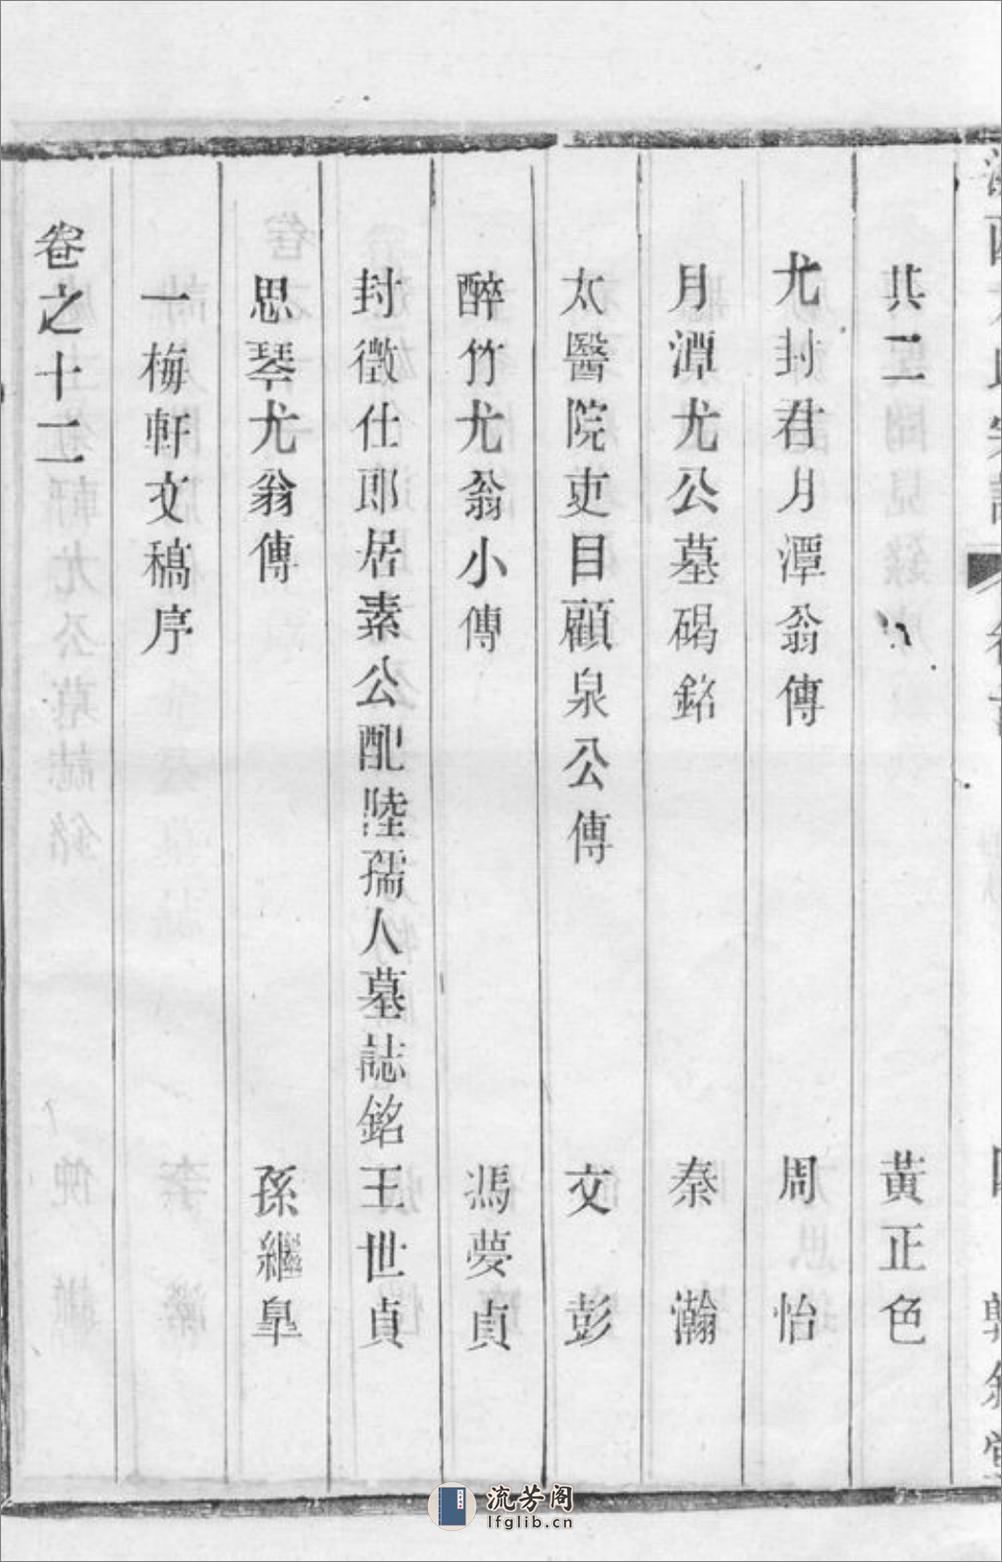 其二 黃正色
尤封君月潭翁傳 周怡
月潭尤公墓碣銘 秦瀚
太醫院吏目顧泉公傳 文彭
醉竹尤翁小傳 馮夢貞
封徵仕郎居素公配陸孺人墓誌銘 王世貞
思琴尤翁傳 孫繼臯
一梅軒文稿序
卷之十二
流芳阁
lfglib.cn